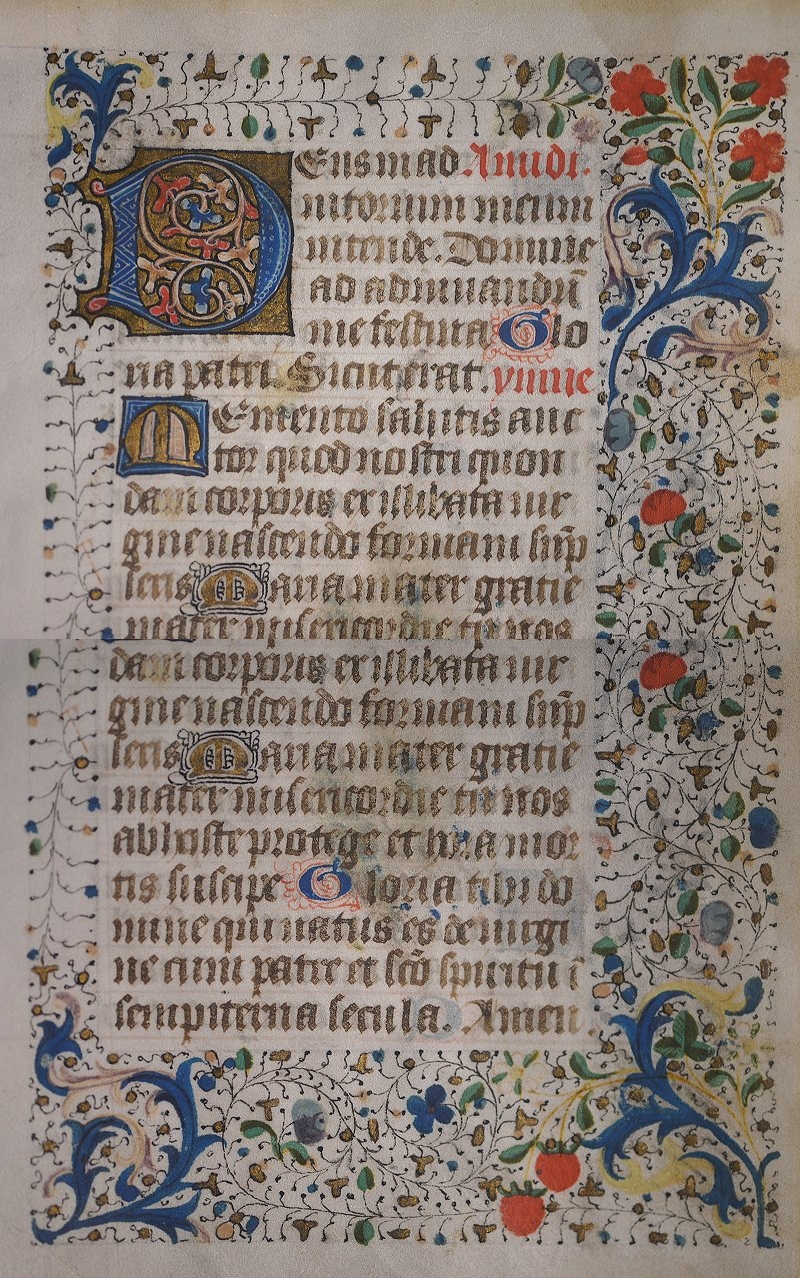 Deus in ad A midi.
iutorium meum
intende. Domine
ad adiuuandū
me festina Glo
ria patri. Sicut erat. ymne
Memento salutis auc
tor quod nostri quon
dam corporis ex illibata uir
gine nascendo formam sūp
seris Maria mater gratie
mater misericordie tu nos
dam corporis ex illibata uir
gine nascendo formam sūp
seris Maria mater gratie
mater misericordie tu nos
ab hoste protege et hora mor
tis suscipe Gloria tibi do
mine qui natus es de uirgi
ne cum patre et scō spiritu i
sempiterna secula. Amen